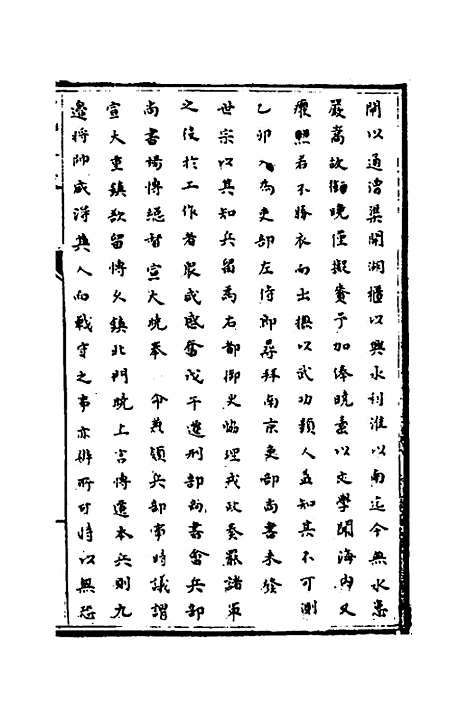 閘以通漕渠開湖櫃以興水利淮以南迄今無水患
嚴嵩故銜曉僅擬賚予加俸曉素以文學聞海內又
癯然若不勝衣而出撫以武功顯人益知其不可測
乙卯入為吏部左侍郎尋拜南京吏部尚書未發
世宗以其知兵留為右都御史協理戎政奏嚴諸軍
之役於工作者眾咸感奮戊午遷刑部尚書會兵部
尚書楊博總督宣大曉奉 命兼領兵部事時議謂
宣大重鎮欲留博久鎮北門曉上言博還本兵則九
邊將帥咸得其人而戰守之事亦辦所可時以無恐